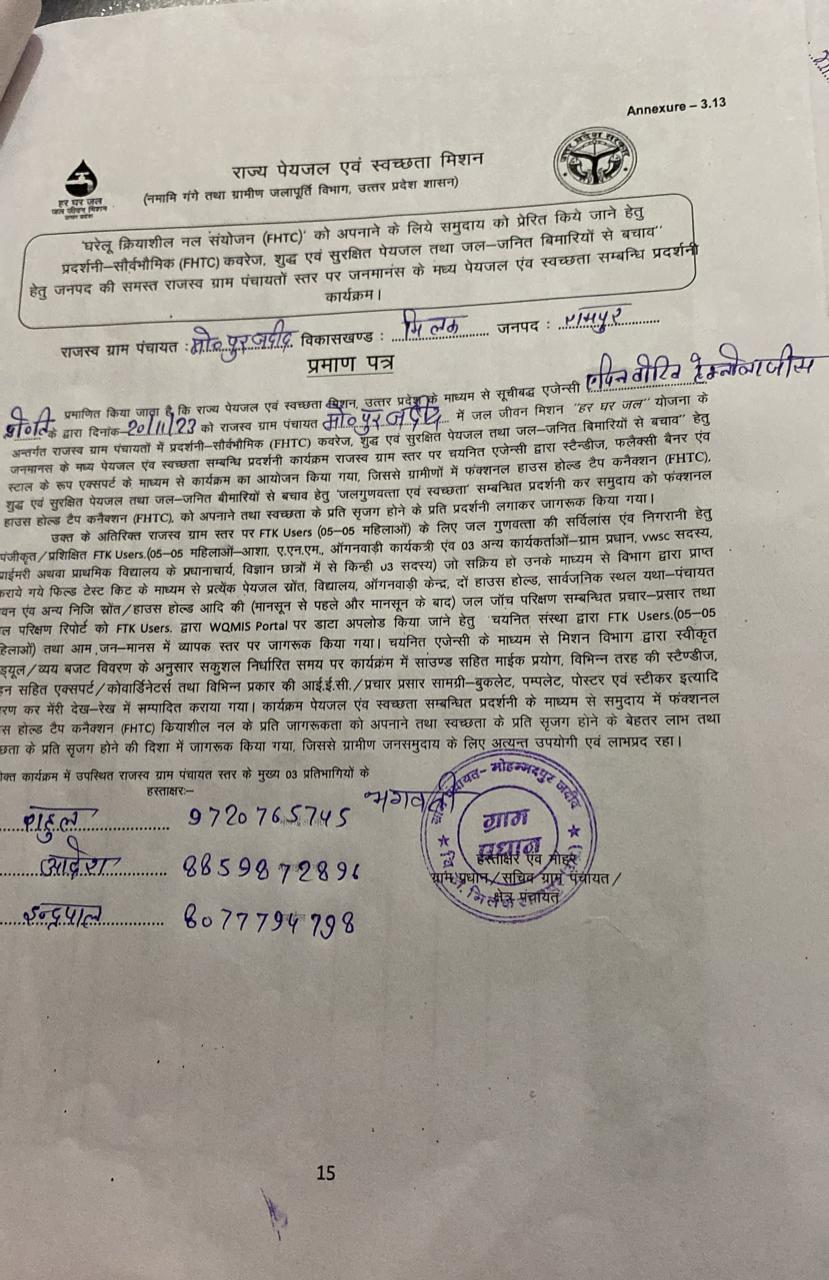 Annexure – 3.13
राज्य पेयजल एवं स्वच्छता मिशन
(नमामि गंगे तथा ग्रामीण जलापूर्ति विभाग, उत्तर प्रदेश शासन)
हर घर जल
जल जीवन मिशन
उत्तर प्रदेश सरकार
'घरेलू क्रियाशील नल संयोजन (FHTC)' को अपनाने के लिये समुदाय को प्रेरित किये जाने हेतु
प्रदर्शनी–सौर्वभौमिक (FHTC) कवरेज, शुद्ध एवं सुरक्षित पेयजल तथा जल–जनित बिमारियों से बचाव"
हेतु जनपद की समस्त राजस्व ग्राम पंचायतों स्तर पर जनमानस के मध्य पेयजल एंव स्वच्छता सम्बन्धि प्रदर्शनी
कार्यक्रम।
राजस्व ग्राम पंचायत : मो० पुर जदीद विकासखण्ड : मिलक जनपद : रामपुर
प्रमाण पत्र
प्रमाणित किया जाता है कि राज्य पेयजल एवं स्वच्छता मिशन, उत्तर प्रदेश के माध्यम से सूचीबद्ध एजेन्सी
के द्वारा दिनांक 20/11/23 को राजस्व ग्राम पंचायत मो० पुर जदीद में जल जीवन मिशन "हर घर जल" योजना के
अन्तर्गत राजस्व ग्राम पंचायतों में प्रदर्शनी–सौर्वभौमिक (FHTC) कवरेज, शुद्ध एवं सुरक्षित पेयजल तथा जल–जनित बिमारियों से बचाव" हेतु
जनमानस के मध्य पेयजल एंव स्वच्छता सम्बन्धि प्रदर्शनी कार्यक्रम राजस्व ग्राम स्तर पर चयनित एजेन्सी द्वारा स्टैन्डीज, फलैक्सी बैनर एंव
स्टाल के रूप एक्सपर्ट के माध्यम से कार्यक्रम का आयोजन किया गया, जिससे ग्रामीणों में फंक्शनल हाउस होल्ड टैप कनैक्शन (FHTC),
शुद्ध एवं सुरक्षित पेयजल तथा जल–जनित बीमारियों से बचाव हेतु 'जलगुणवत्ता एवं स्वच्छता' सम्बन्धित प्रदर्शनी कर समुदाय को फंक्शनल
हाउस होल्ड टैप कनैक्शन (FHTC), को अपनाने तथा स्वच्छता के प्रति सृजग होने के प्रति प्रदर्शनी लगाकर जागरूक किया गया।
उक्त के अतिरिक्त राजस्व ग्राम स्तर पर FTK Users (05–05 महिलाओं) के लिए जल गुणवत्ता की सर्विलांस एंव निगरानी हेतु
पंजीकृत/प्रशिक्षित FTK Users.(05–05 महिलाओं–आशा, ए.एन.एम., ऑगनवाड़ी कार्यकत्री एंव 03 अन्य कार्यकर्ताओं–ग्राम प्रधान, vwsc सदस्य,
प्राईमरी अथवा प्राथमिक विद्यालय के प्रधानाचार्य, विज्ञान छात्रों में से किन्ही 03 सदस्य) जो सक्रिय हो उनके माध्यम से विभाग द्वारा प्राप्त
कराये गये फिल्ड टेस्ट किट के माध्यम से प्रत्येंक पेयजल स्रोंत, विद्यालय, ऑगनवाड़ी केन्द्र, दों हाउस होल्ड, सार्वजनिक स्थल यथा–पंचायत
वन एंव अन्य निजि स्रोंत/हाउस होल्ड आदि की (मानसून से पहले और मानसून के बाद) जल जॉच परिक्षण सम्बन्धित प्रचार–प्रसार तथा
ल परिक्षण रिपोर्ट को FTK Users. द्वारा WQMIS Portal पर डाटा अपलोड किया जाने हेतु चयनित संस्था द्वारा FTK Users.(05–05
हिलाओं) तथा आम जन–मानस में व्यापक स्तर पर जागरूक किया गया। चयनित एजेन्सी के माध्यम से मिशन विभाग द्वारा स्वीकृत
ड्यूल/व्यय बजट विवरण के अनुसार सकुशल निर्धारित समय पर कार्यक्रंम में सांउण्ड सहित माईक प्रयोग, विभिन्न तरह की स्टैण्डीज,
न सहित एक्सपर्ट/कोवार्डिनेटर्स तथा विभिन्न प्रकार की आई.ई.सी./प्रचार प्रसार सामग्रि–बुकलेट, पम्पलेट, पोस्टर एवं स्टीकर इत्यादि
रण कर मेंरी देख–रेख में सम्पादित कराया गया। कार्यक्रम पेयजल एंव स्वच्छता सम्बन्धित प्रदर्शनी के माध्यम से समुदाय में फंक्शनल
स होल्ड टैप कनैक्शन (FHTC) कियाशील नल के प्रति जागरूकता को अपनाने तथा स्वच्छता के प्रति सृजग होने के बेहतर लाभ तथा
छता के प्रति सृजग होने की दिशा में जागरूक किया गया, जिससे ग्रामीण जनसमुदाय के लिए अत्यन्त उपयोगी एवं लाभप्रद रहा।
क्त कार्यक्रम में उपस्थित राजस्व ग्राम पंचायत स्तर के मुख्य 03 प्रतिभागियों के
हस्ताक्षरः–
राहुल 9720765745
आदेश 8859872896
इन्द्रपाल 8077794798
भगवती
ग्राम पंचायत– मोहम्मदपुर जदीद
ग्राम
प्रधान
हस्ताक्षर एंव मोहर
ग्राम प्रधान/सचिव ग्राम पंचायत/
क्षेत्र पंचायत
15